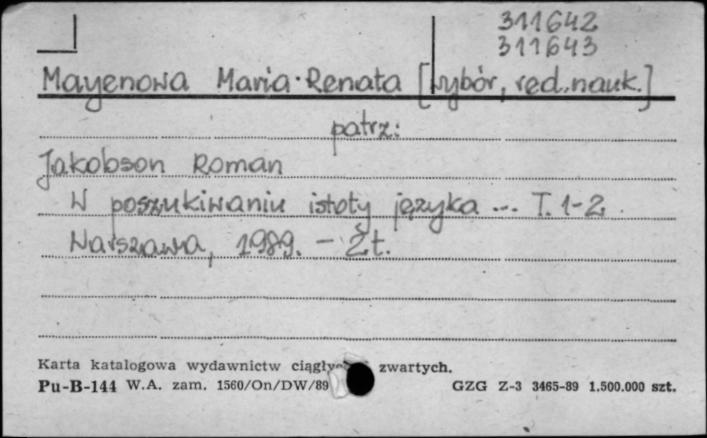 311642
311643
Mayenowa Maria Renata [wybór, red. nauk.]
patrz:
Jakobson Roman
W poszukiwaniu istoty języka ... T. 1-2.
Warszawa, 1989. - 2t.
Karta katalogowa wydawnictw zwartych.
Pu-B-144 W.A. zam. 1560/On/DW/89 GZG Z-3 3465-89 1.500.000 szt.